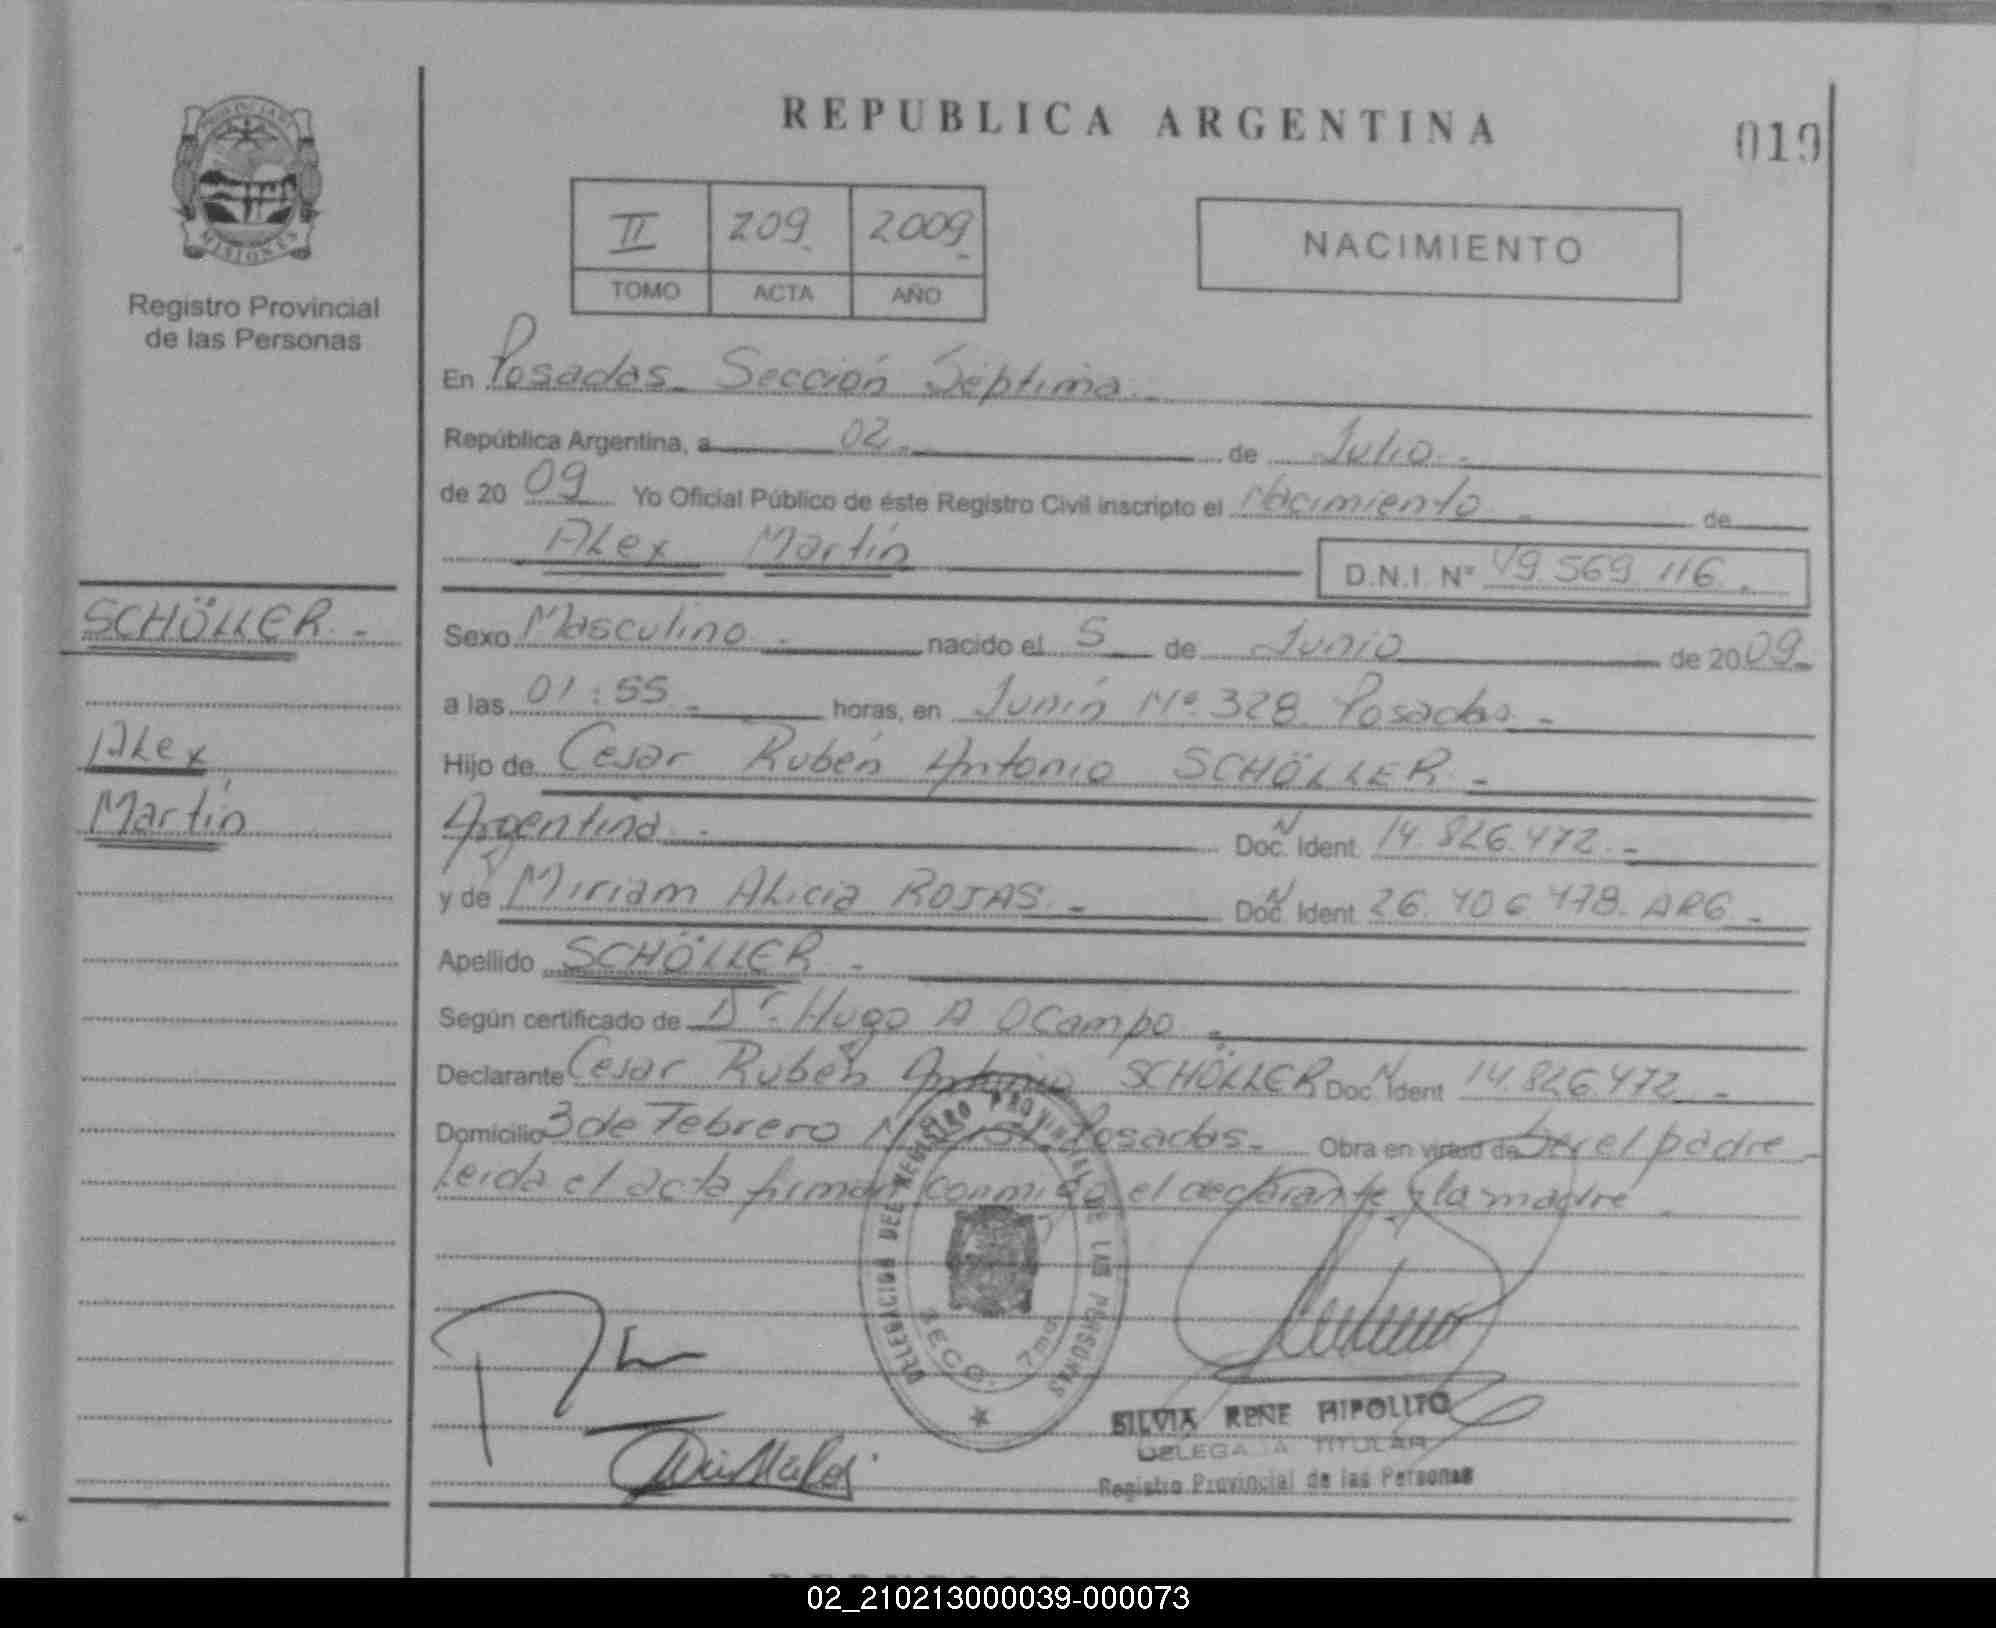 REPUBLICA ARGENTINA
019
PROVINCIA DE
MISIONES
Registro Provincial
de las Personas
II 209 2009
TOMO ACTA AÑO
NACIMIENTO
En Posadas Sección Séptima
República Argentina, a 02 de Julio
de 2009 Yo Oficial Público de éste Registro Civil inscripto el Nacimiento de
Alex Martín D.N.I. Nº 49.569.116
SCHÖLLER
Alex
Martín
Sexo Masculino nacido el 5 de Junio de 2009
a las 01:55 horas, en Junín Nº 328 Posadas
Hijo de Cesar Rubén Antonio SCHÖLLER
Argentina Doc. Ident. 14.826.472
y de Miriam Alicia ROJAS Doc. Ident. 26.406.478 ARG
Apellido SCHÖLLER
Según certificado de Dr. Hugo A Ocampo
Declarante Cesar Rubén Antonio SCHÖLLER Doc. Ident. 14.826.472
Domicilio 3 de Febrero Posadas Obra en virtud de Ser el padre
Leida el acta firman conmigo el declarante y la madre
DELEGACION DEL REGISTRO PROVINCIAL DE LAS PERSONAS
SECC. 7ma
SILVIA RENE HIPOLITO
DELEGADA TITULAR
Registro Provincial de las Personas
02_210213000039-000073